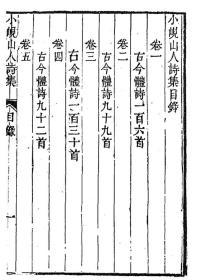 小峴山人詩集目錄
卷一
古今體詩一百六首
卷二
古今體詩九十九首
卷三
古今體詩一百三十首
卷四
古今體詩九十二首
卷五
小峴山人詩集
目錄
一